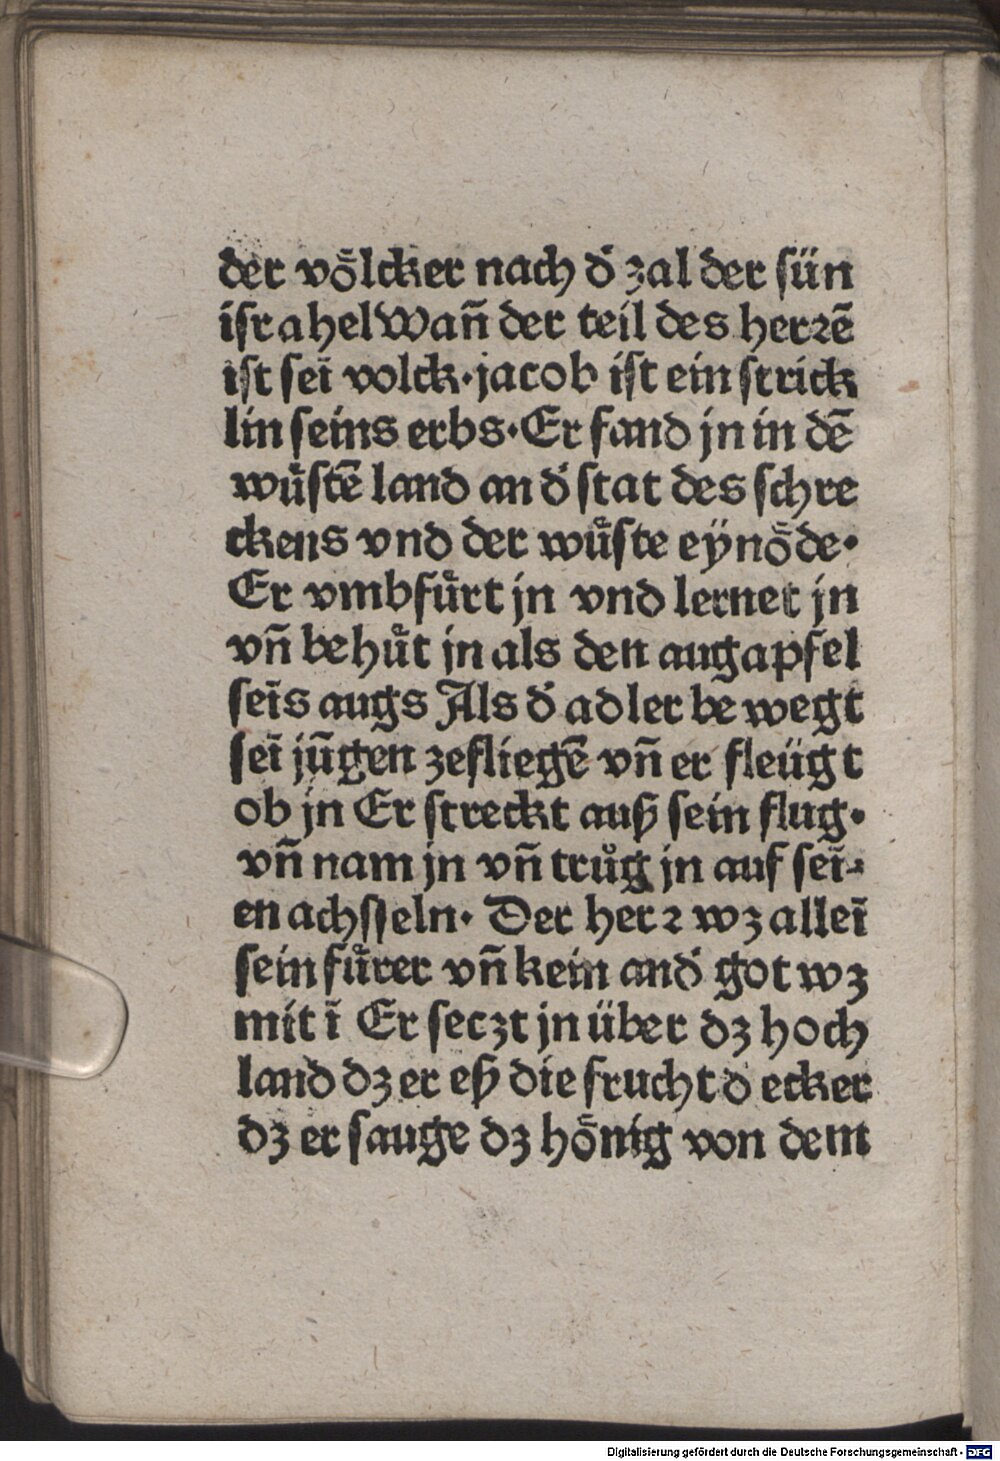 der voͤlcker nach d' zal der sün
israhel Wañ der teil des herꝛē
ist seī volck·jacob ist ein strick
lin seins erbs·Er fand jn in dē
wuͤstē land an d' stat des schre
ckens vnd der wuͤste eÿnoͤde·
Er vmbfuͤrt jn vnd lernet jn
vñ behuͤt jn als den augapfel
seīs augs Als d' adler be wegt
seī jūgen zefliegē vñ er fleügt
ob jn Er streckt auß sein flug·
vñ nam jn vñ truͦg jn auf seī⸗
en achsseln· Der herꝛ wz alleī
sein fuͤrer vñ kein and' got wz
mit ī Er seczt jn über dz hoch
land dz er eß die frucht d ecker
dz er sauge dz hoͤnig von dem
Digitalisierung gefördert durch die Deutsche Forschungsgemeinschaft - DFG